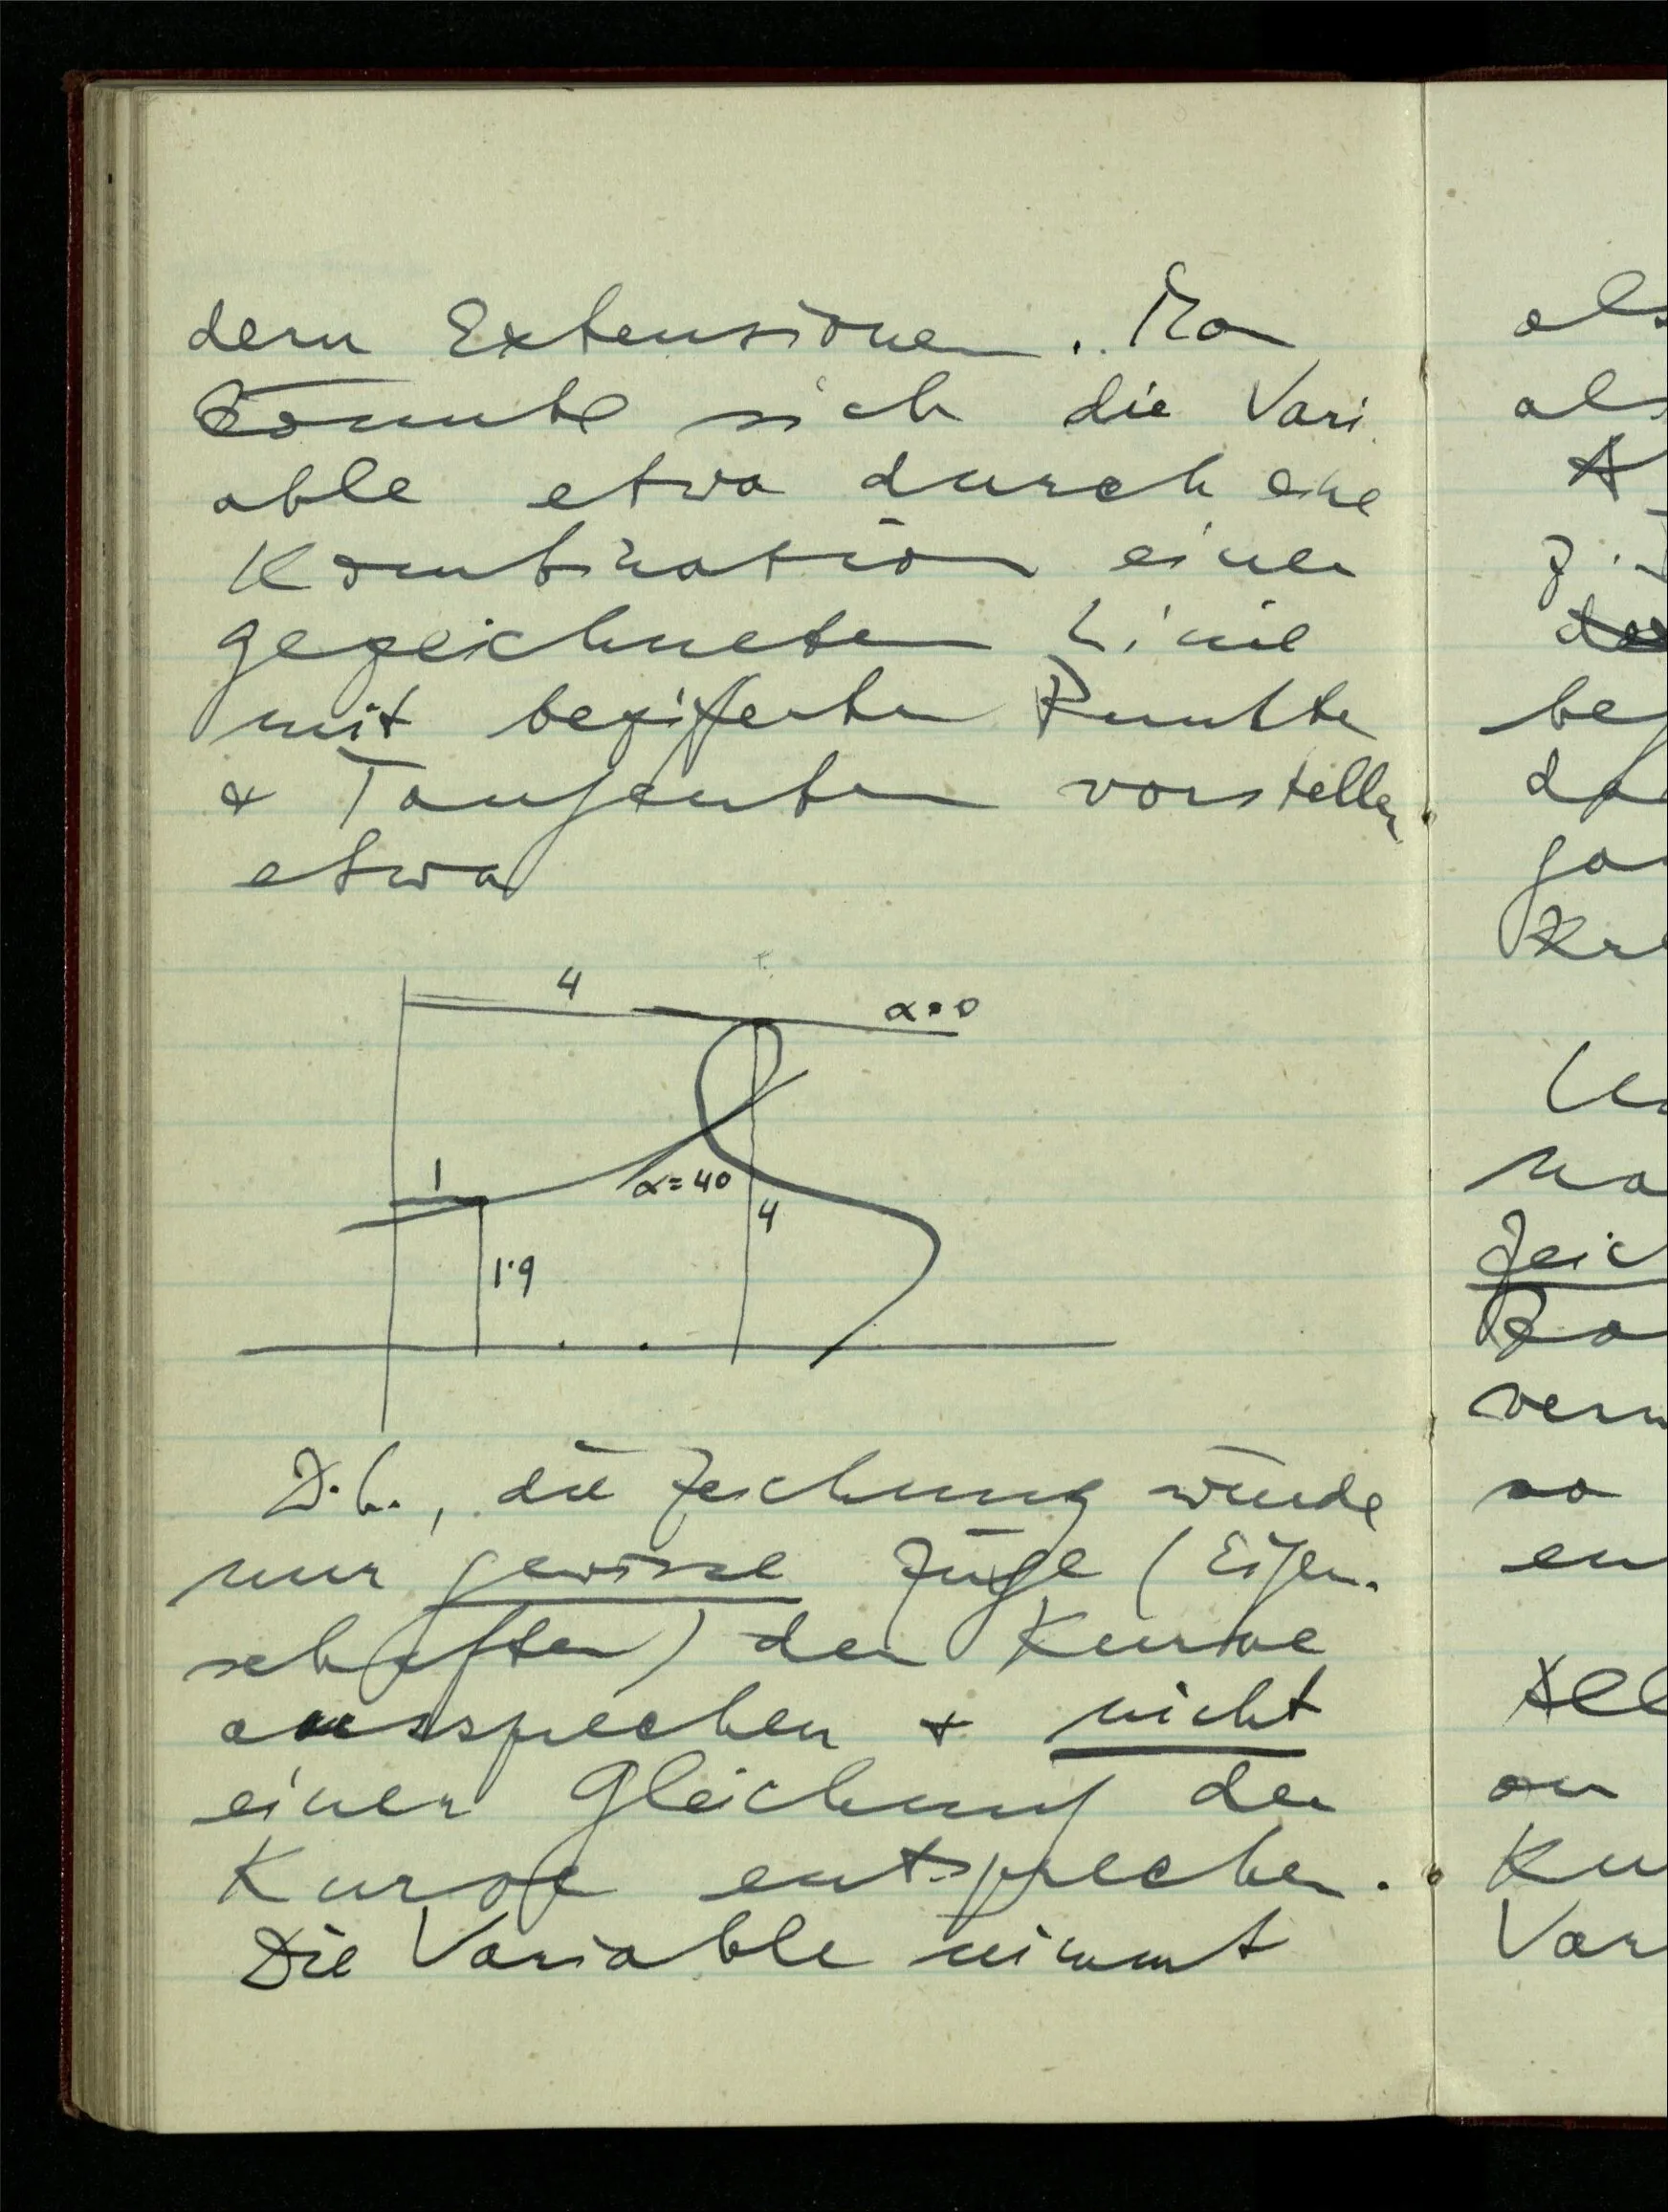 dern Extensionen. Man
könnte sich die Vari
able etwa durch eine
Kombination einer
gezeichneten Linie
mit bezifferten Punkten
& Tangenten vorstellen
etwa
4
α=0
1
α=40
4
1·9
D.h., die Zeichnung würde
nur gewisse Züge (Eigen-
schaften) der Kurve
aussprechen & nicht
einer Gleichung der
Kurve entsprechen.
Die Variable nimmt
als
als
z.
be
da
Zeic
so
Ku
Var